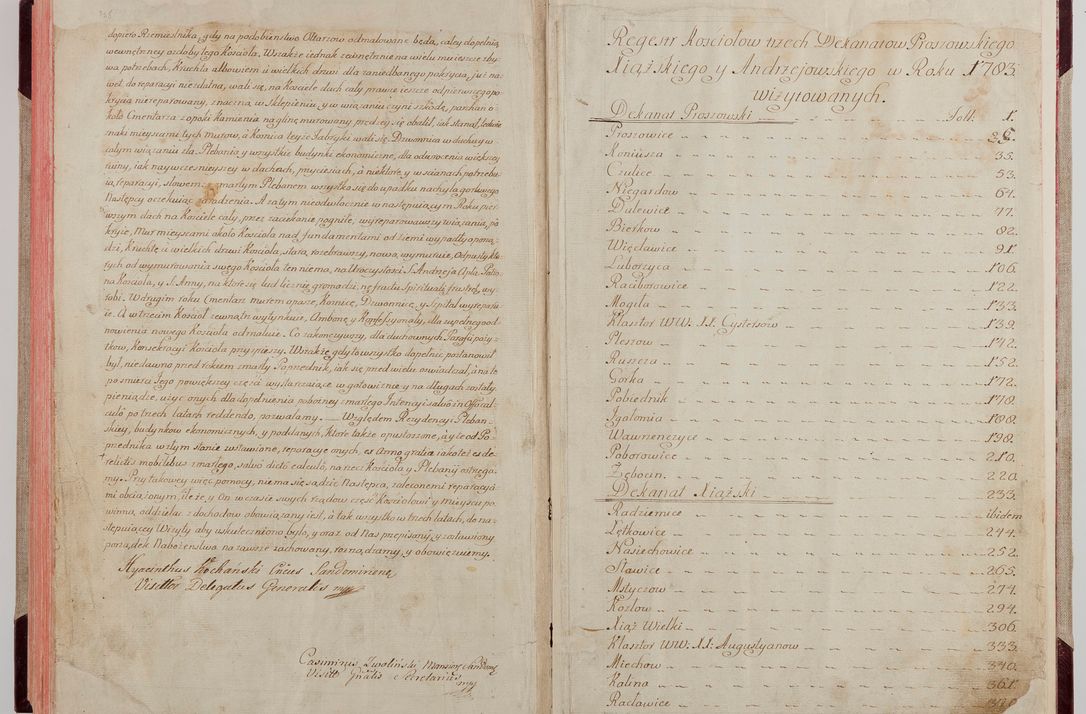 dopiero Rzemieslnika, gdy na podobienstwo Ołtarzow odmalowane będą, całey dopełnią
wewnętrzney ozdoby tego Kościoła. Wszakże iednak zewnętrznie na wielu mieyscach zby-
wa potrzebach, Kruchta albowiem u wielkich drzwi dla zaniedbanego pokrycia, iuż na-
wet do reparacyi niezdalna, wali się, na Kościele dach cały prawie ieszcze od pierwszego po-
krycia niereparowany, znaczną w Sklepieniu, y w wiązaniu czyni szkodę, parkan o-
koło Cmentarza z opoki kamienia na glinę murowany przed się obalił, iak stamał, ledwie
znaki mieyscami tych murow, a Kosnica teyże fabryki wali się. Dzwonnica w dachu y w
całym wiązaniu zła. Plebania y wszystkie budynki ekonomiczne, dla odwrocenia większey
ruiny, iak naywcześnieyszey w dachach, przyciesiach, a niektóre y w scianach potrzebu-
ią reparacyi, słowem: z zmarłym Plebanem wszystko się do upadku nachyla gorliwego
Następcy oczekuiąc zaradzenia. A zatym nieodwłocznie w następuiącym Roku pier-
wszym dach na Kościele cały, przez zaciekanie pogniłe, wyreparowawszy wiązania, po-
kryie, Mur mieyscami około Kościoła nad fundamentami od ziemi wypadły oporzą-
dzi, Kruchtę u wielkich drzwi Kościoła, starą, rozebrawszy, nową, wymuruie, Odpusty kto-
rych od wymurowania swego Kościoła ten niema, na Uroczystości S. Andrzeja Apła Patro-
na Kościoła, y S. Anny, na które się lud licznie gromadzi, ne fraudu Spirituali frustretur, wy-
robi. W drugim roku Cmentarz murem opasze, Kosnicę, Dzwonnicę, y Szpital wyreparu-
ie. A w trzecim Kościoł zewnątrz wytynkuie, Ambonę y Konfessyonały, dla zupełney od-
nowienia nowego Kościoła odmaluie. Co zakończywszy, dla duchownych Parafii pożyt-
kow, Konsekracyi Kościoła przyspieszy. Wszakże gdy to wszystko dopełnić, postanowił
był, niedawno przed rokiem zmarły Poprzednik, iak się przed wielu oswiadczał, a na to
po śmierci Iego powiększey części wystarczaiące w gotowiznie y na długach zostały
pieniądze, użyć onych dla dopełnienia pobożney zmarłego Intencyi salvo in Offo cal-
culo po trzech latach reddendo, pozwalamy. Względem Rezydencyi Pleban-
skiey, budynkow ekonomicznych, y poddanych, które także opustoszone, a y te od Po-
przednika w złym stanie zostawione, reparacye onych, ex Anno gratiæ iakoteż ex de-
relictis mobilibus zmarłego, salvo dicto calculo, na rzecz Kościoła y Plebanij ostrzega-
my. Przy takowey więc pomocy, nie ma się sądzić Następca, zaleconemi reparacya-
mi obciążonym, ile że y On w czasie swych rządow część Kościołowi y mieyscu po-
winną, oddzielać z dochodow obowiązany iest, a tak wszystko w trzech latach, do na-
stępuiącey Wizyty aby uskuteczniono było, y oraz od Nas przepisany, y zostawiony
porządek Nabożeństwa na zawsze zachowany, rozrządzamy, y obowięzuiemy.
Hyacinthus Kochański Cñcus Sandomiriens
Visitter Delegatus Generalis mpp
Casimirus Zwoliński Mansion: Sandom:
Visitt. Gñlis Secretarius
mpp
Regestr Kościołow trzech Dekanatow Proszowskiego
Xiążskiego y Andrzejowskiego w Roku 1783.
wizytowanych.
Dekanat Proszowski Foll. 1.
Proszowice 25.
Koniusza 35.
Czulice 53.
Niegardow 64.
Dalewice 77.
Bieńkow 82.
Więcławice 91.
Luborzyca 106.
Raciborowice 122.
Mogiła 133.
Klasztor WW. II. Cystersow 139.
Pleszow 142.
Ruszcza 152.
Gorka 172.
Pobiednik 178.
Igołomia 188.
Wawrzenczyce 198.
Poborowice 210.
Zębocin 220.
Dekanat Xiążski 233.
Radziemice ibidem
Łętkowice 244.
Nasiechowice 252.
Sławice 265.
Mstyczow 274.
Kozłow 294.
Xiąż Wielki 306.
Klasztor WW. II. Augustyanow 333.
Miechow 340.
Kalina 361.
Racławice 370.